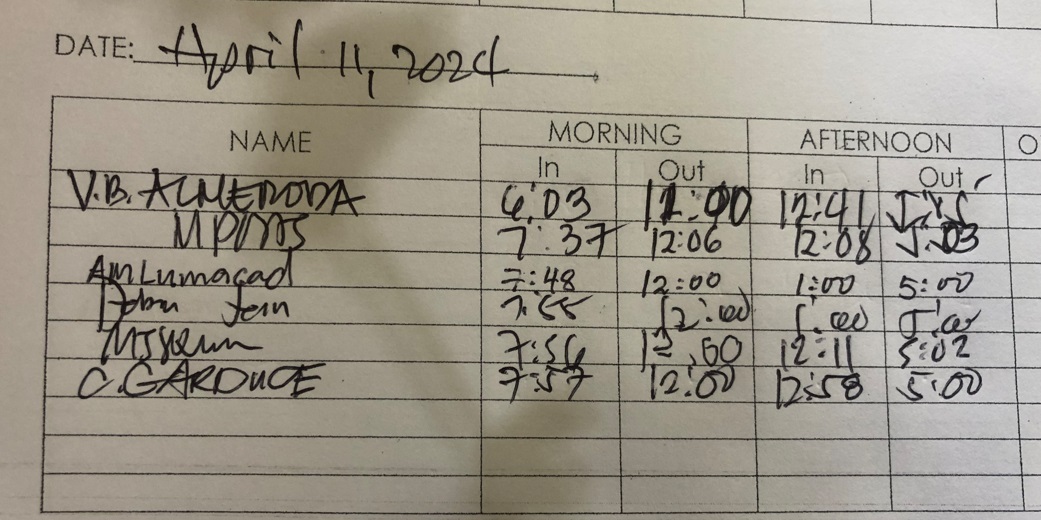 DATE: April 11, 2024
NAME MORNING AFTERNOON O
In Out In Out
V.B. ALMERODA 6:03 12:00 12:41
7:37 12:06 12:08 5:03
AMLumacad 7:48 12:00 1:00 5:00
7:55 12:00 1:00 5:00
7:56 12:00 12:11 5:02
C. GARDUCE 7:57 12:00 12:58 5:00